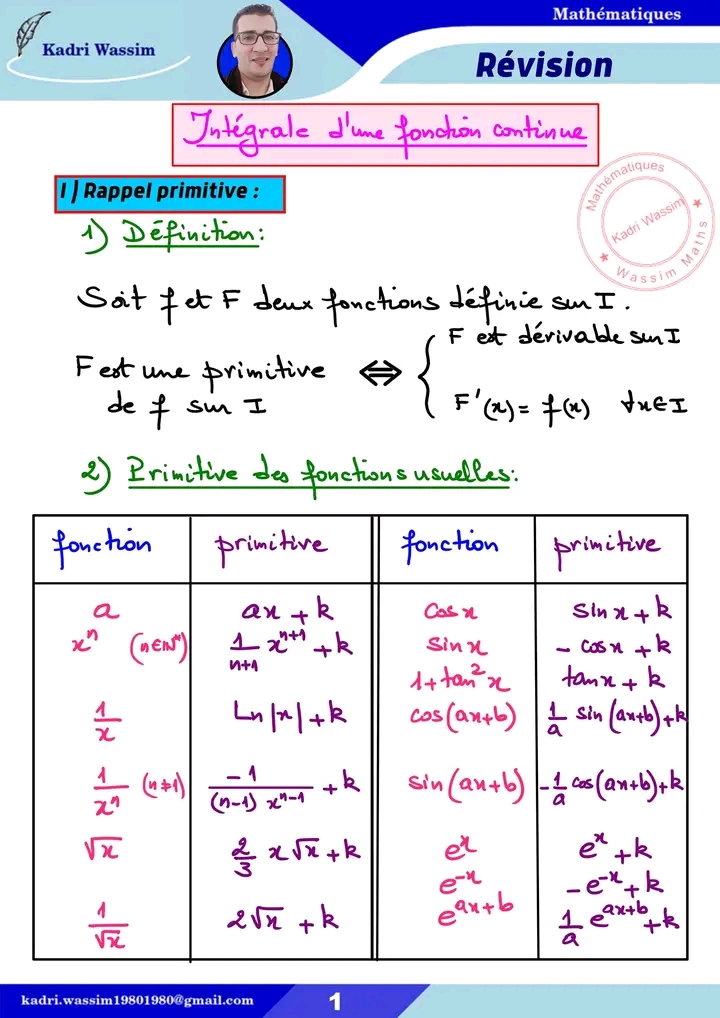 Mathématiques
Kadri Wassim
Révision
Intégrale d'une fonction continue
I) Rappel primitive :
Mathématiques
Kadri Wassim
Wassim Maths
1) Définition:
Soit f et F deux fonctions définie sur I.
F est une primitive de f sur I ⇔ { F est dérivable sur I
F'(x) = f(x) ∀x∈I
2) Primitive des fonctions usuelles:
fonction | primitive | fonction | primitive
a | ax + k | cos x | sin x + k
xⁿ (n∈ℕ*) | 1/(n+1) xⁿ⁺¹ + k | sin x | - cos x + k
1 + tan² x | tan x + k
1/x | Ln|x| + k | cos(ax+b) | 1/a sin(ax+b) + k
1/xⁿ (n≠1) | -1/((n-1) xⁿ⁻¹) + k | sin(ax+b) | -1/a cos(ax+b) + k
√x | 2/3 x√x + k | eˣ | eˣ + k
e⁻ˣ | -e⁻ˣ + k
1/√x | 2√x + k | e^(ax+b) | 1/a e^(ax+b) + k
kadri.wassim19801980@gmail.com
1